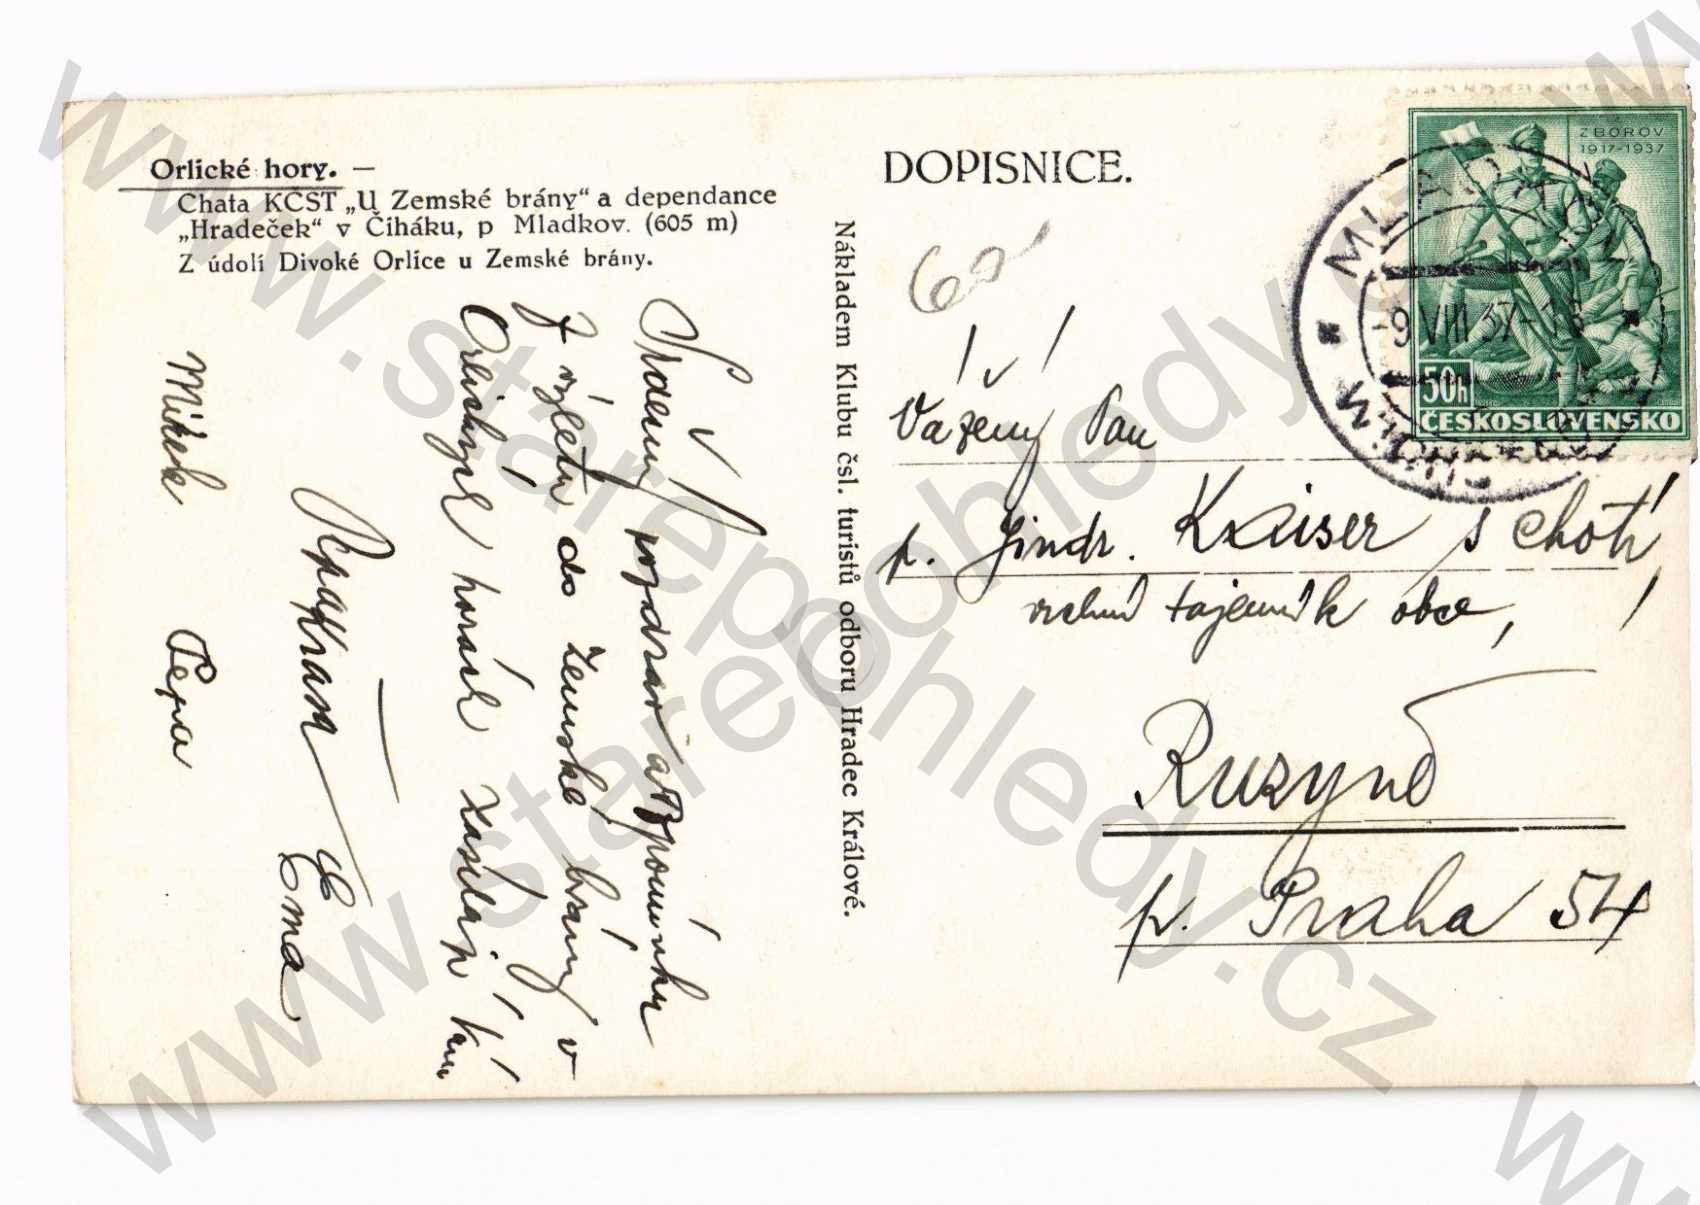 Orlické hory. —
Chata KČST „U Zemské brány“ a dependance
„Hradeček“ v Čiháku, p Mladkov. (605 m)
Z údolí Divoké Orlice u Zemské brány.
Srdečný pozdrav a vzpomínku
z výletu do Zemské brány v
Orlických horách zasílají Vám
Ema
Mirek Pepa
Nákladem Klubu čsl. turistů odboru Hradec Králové.
DOPISNICE.
60
Vážený Pan
p. Jindr. Kaiser s chotí
vrchní tajemník obce,
Ruzyně
p. Praha 54
ZBOROV
1917-1937
50h
ČESKOSLOVENSKO
MLADKOV
9 VIII 37
www.starepohledy.cz
www.starepohledy.cz